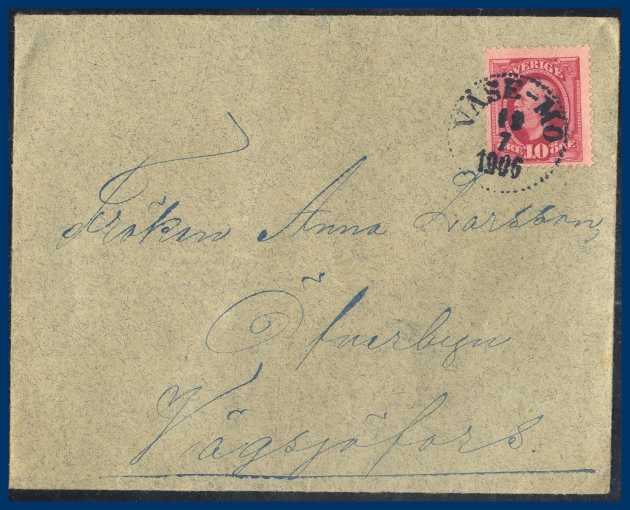 SVERIGE
VÄSE-MO
10
7
1906
10 ÖRE
Fröken Anna Larsson,
Öfverbyn
Vägsjöfors.